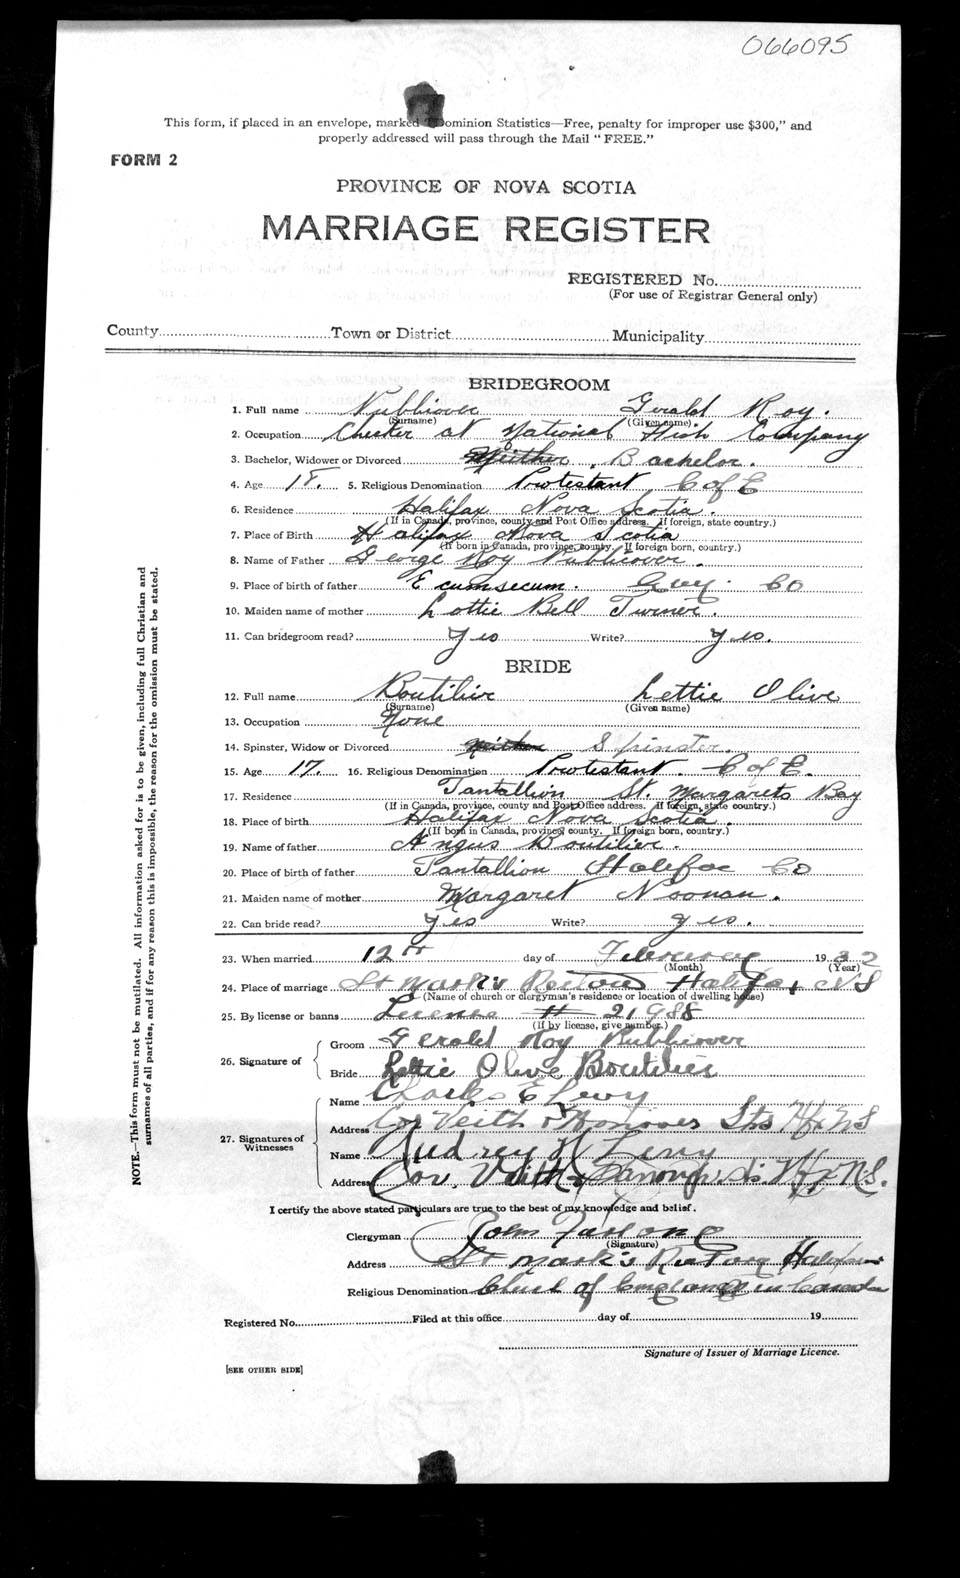 066095
This form, if placed in an envelope, marked "Dominion Statistics—Free, penalty for improper use $300," and
properly addressed will pass through the Mail "FREE."
FORM 2
PROVINCE OF NOVA SCOTIA
MARRIAGE REGISTER
REGISTERED No.
(For use of Registrar General only)
County Town or District Municipality
BRIDEGROOM
1. Full name Publicover Gerald Roy.
(Surname) (Given name)
2. Occupation Checker at National Fish Company
3. Bachelor, Widower or Divorced Neither. Bachelor.
4. Age 18. 5. Religious Denomination Protestant C of E
6. Residence Halifax Nova Scotia.
(If in Canada, province, county and Post Office address. If foreign, state country.)
7. Place of Birth Halifax Nova Scotia
(If born in Canada, province, county. If foreign born, country.)
8. Name of Father George Roy Publicover.
9. Place of birth of father Ecumsecum. Guy. Co
10. Maiden name of mother Lottie Bell Turner.
11. Can bridegroom read? Yes Write? yes.
BRIDE
12. Full name Boutilier Lettie Olive
(Surname) (Given name)
13. Occupation None
14. Spinster, Widow or Divorced Neither Spinster.
15. Age 17. 16. Religious Denomination Protestant. C of E.
17. Residence Tantallion St. Margarets Bay
(If in Canada, province, county and Post Office address. If foreign, state country.)
18. Place of birth Halifax Nova Scotia.
(If born in Canada, province, county. If foreign born, country.)
19. Name of father Angus Boutilier.
20. Place of birth of father Tantallion Halifax Co
21. Maiden name of mother Margaret Noonan.
22. Can bride read? yes Write? yes.
23. When married 12th day of February 1932
(Month) (Year)
24. Place of marriage St Mark's Rectory Halifax NS
(Name of church or clergyman's residence or location of dwelling house)
25. By license or banns License # 21988
(If by license, give number.)
26. Signature of Groom Gerald Roy Publicover
Bride Lettie Olive Boutilier
27. Signatures of Witnesses Name Charles E Levy
Address Cor Veith & Hanover Sts Hfx NS
Name Audrey H Levy
Address Cor. Veith & Hanover Sts. Hfx N.S.
I certify the above stated particulars are true to the best of my knowledge and belief.
Clergyman John
(Signature)
Address St Mark's Rectory Halifax
Religious Denomination Church of England in Canada
Registered No. Filed at this office day of 19
Signature of Issuer of Marriage Licence.
[SEE OTHER SIDE]
NOTE.—This form must not be mutilated. All information asked for is to be given, including full Christian and
surnames of all parties, and if for any reason this is impossible, the reason for the omission must be stated.